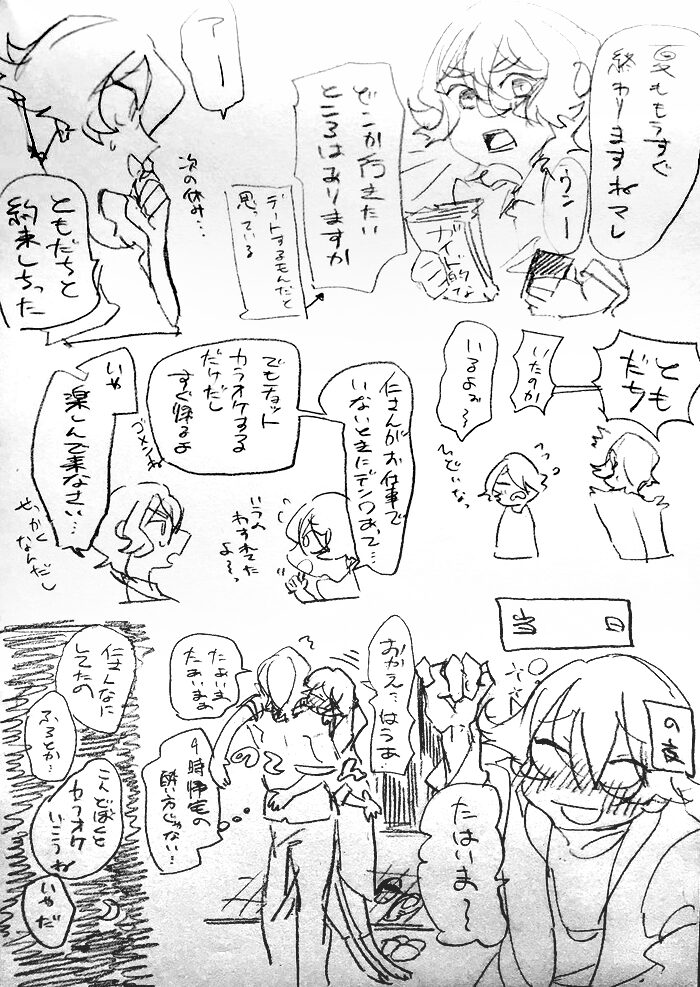 夏ももうすぐ
終わりますねマレ
ウンー
どこか行きたい
ところはありますか
ガイド的な
デートするもんだと
思っている
アー
次の休み…
ともだちと
約束しちった
とも
だち
いたのか
いるよォ〜
ひどいなっ
仁さんがお仕事で
いないときにデンワあって…
でもチョット
カラオケする
だけだし
すぐ帰るよ
ゴメンね
いうん
わすれてた
よ〜っ
いや
楽しんで来なさい…
せっかく
なんだし
当日
の夜
たはいま〜
おかえ…はうあ
たぁいま
たぁいまぁ
9時帰宅の
酔い方じゃない…
仁さんなに
してたの
ふろとか…
こんどぼくと
カラオケ
いこうね
いやだ